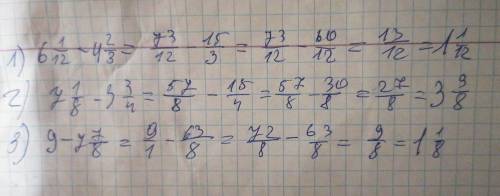 1) 6 1/12 - 4 2/3 = 73/12 - 15/3 = 73/12 - 60/12 = 13/12 = 1 1/12
2) 7 1/8 - 3 3/4 = 57/8 - 15/4 = 57/8 - 30/8 = 27/8 = 3 3/8
3) 9 - 7 7/8 = 9/1 - 63/8 = 72/8 - 63/8 = 9/8 = 1 1/8